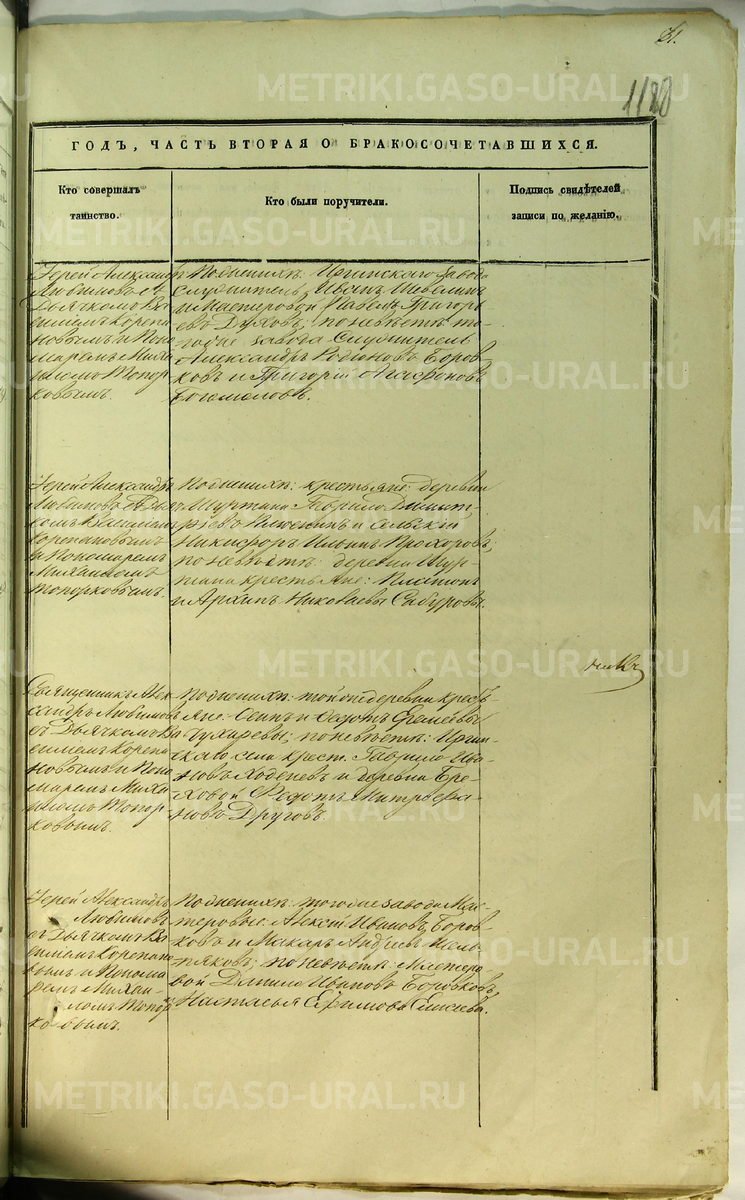 81.
1180
ГОДЪ, ЧАСТЬ ВТОРАЯ О БРАКОСОЧЕТАВШИХСЯ.
Кто совершалъ
таинство.
Кто были поручители.
Подпись свидѣтелей
записи по желанію.
Іерей Александръ
Любимовъ съ
Дьячкомъ Ва
силіемъ Корепа
новымъ и Поно
маремъ Миха
иломъ Топор
ковымъ.
По женихѣ: Иргинскаго завода
Служитель Иванъ
и Мастеровой Павелъ Григорь
евъ Духовъ; по невѣстѣ то
гоже завода Служитель
Александръ Родіоновъ Боров
ковъ и Григорій Агафоновъ
Богомоловъ.
Іерей Александръ
Любимовъ съ Дьяч
комъ Василіемъ
Корепановымъ
и Пономаремъ
Михаиломъ
Топорковымъ.
По женихѣ: крестьяне деревни
Шуртана Гаврило Димит
ріевъ и
Никифоръ Ильинъ Прохоровъ;
по невѣстѣ: деревни Шур-
тана крестьяне: Платонъ
и Архипъ Николаевы Сабуровы.
Священникъ Алек
сандръ Любимовъ
съ Дьячкомъ Ва
силіемъ Корепа
новымъ и Поно
маремъ Миха
иломъ Топор-
ковымъ.
По женихѣ: той же деревни кресть
яне и Федотъ Еремѣевы
Чухаревы; по невѣстѣ: Иргин
скаго села крест. Гаврило Ива
новъ Ходеневъ и деревни Бре-
ховой Федотъ Митрофа-
новъ Друговъ.
Іерей Александръ
Любимовъ
съ Дьячкомъ Ва
силіемъ Корепано
вымъ и Понома
ремъ Михаи-
ломъ Топор
ковымъ.
По женихѣ: тогоже завода Мас-
теровые: Алексѣй Ивановъ Боров
ковъ и Макаръ
по невѣстѣ: Мастеро
вой Данило Ивановъ Боровковъ,
Настасья Ефимова Елисѣева.
METRIKI.GASO-URAL.RU